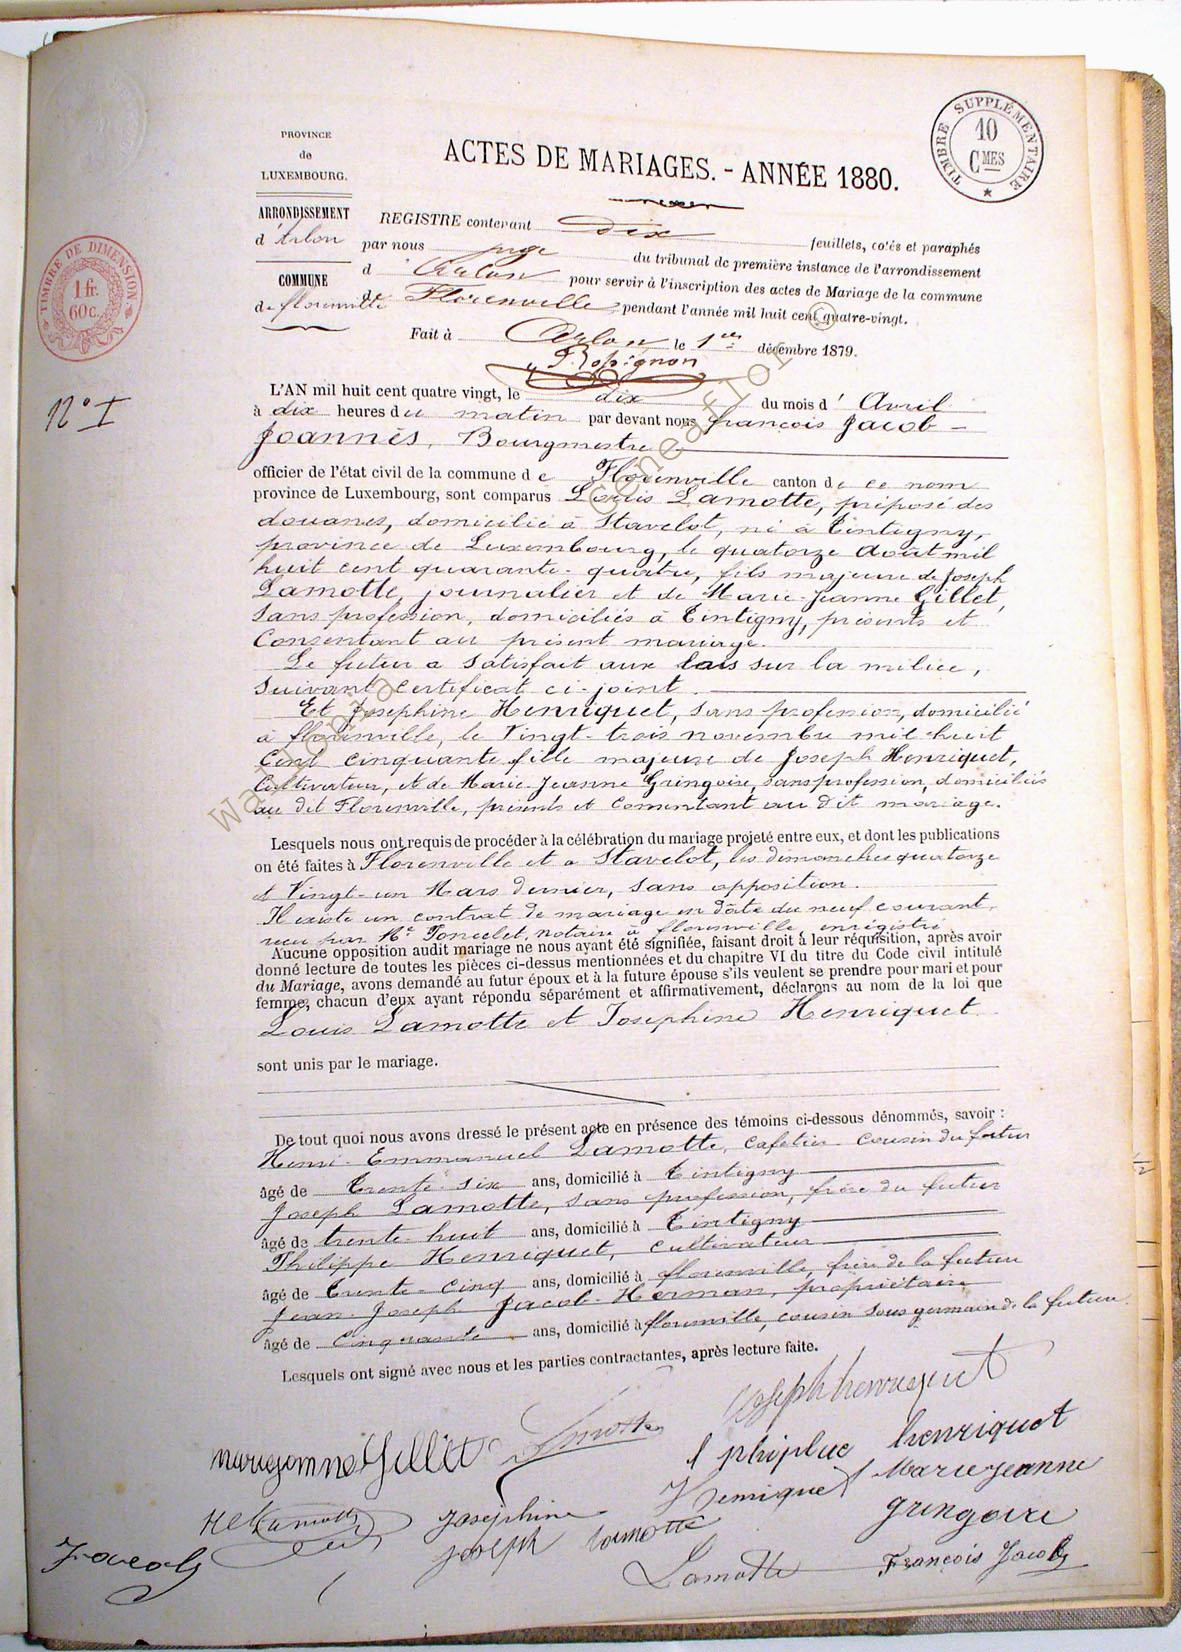 PROVINCE
de
LUXEMBOURG.
ARRONDISSEMENT
d'Arlon
COMMUNE
de florenville
TIMBRE DE DIMENSION
1 fr.
60 c.
N° I
TIMBRE SUPPLÉMENTAIRE
10
CMES
ACTES DE MARIAGES. - ANNÉE 1880.
REGISTRE contenant dix feuillets, cotés et paraphés
par nous juge du tribunal de première instance de l'arrondissement
d'Arlon pour servir à l'inscription des actes de Mariage de la commune
de Florenville pendant l'année mil huit cent quatre-vingt.
Fait à Arlon le 1er décembre 1879.
L'AN mil huit cent quatre vingt, le dix du mois d'Avril
à dix heures du matin par devant nous françois Jacob-
Joannès, Bourgmestre
officier de l'état civil de la commune de Florenville canton de ce nom
province de Luxembourg, sont comparus Louis Lamotte, préposé des
douanes, domicilié à Stavelot, né à Tintigny,
province de Luxembourg, le quatorze Août mil
huit cent quarante-quatre, fils majeure de Joseph
Lamotte, journalier et de Marie-Jeanne Gillet,
sans profession, domiciliés à Tintigny, présents et
Consentant au présent mariage.
Le futur a satisfait aux lois sur la milice,
suivant certificat ci-joint.
Et Josephine Henriquet, sans profession, domicilié
à florenville, le Vingt-trois novembre mil huit
Cent cinquante fille majeure de Joseph Henriquet,
Cultivateur, et de Marie Jeanne Gringoire, sans profession, domiciliés
au dit Florenville, présents et consentant au dit mariage.
Lesquels nous ont requis de procéder à la célébration du mariage projeté entre eux, et dont les publications
on été faites à Florenville et à Stavelot, les dimanches quatorze
et Vingt-un Mars dernier, sans opposition.
Il existe un contrat de mariage en date du neuf courant,
reçu par Me Poncelet, notaire à florenville, enrégistré
Aucune opposition audit mariage ne nous ayant été signifiée, faisant droit à leur réquisition, après avoir
donné lecture de toutes les pièces ci-dessus mentionnées et du chapitre VI du titre du Code civil intitulé
du Mariage, avons demandé au futur époux et à la future épouse s'ils veulent se prendre pour mari et pour
femme, chacun d'eux ayant répondu séparément et affirmativement, déclarons au nom de la loi que
Louis Lamotte et Josephine Henriquet
sont unis par le mariage.
De tout quoi nous avons dressé le présent acte en présence des témoins ci-dessous dénommés, savoir :
Henri-Emmanuel Lamotte, cafetier cousin du futur
âgé de trente-six ans, domicilié à Tintigny
Joseph Lamotte, sans profession, frère du futur
âgé de trente-huit ans, domicilié à Tintigny
Philippe Henriquet, cultivateur
âgé de trente-cinq ans, domicilié à florenville, frère de la future
Jean-Joseph Jacob-Herman, propriétaire
âgé de cinquante ans, domicilié à florenville, cousin sous germain de la future.
Lesquels ont signé avec nous et les parties contractantes, après lecture faite.
Joseph henriquet
mariejeanne Gillet Lamotte
henriquet
Marie Jeanne
Henriquet
H E Lamotte Joséphine
gringoire
Joseph Lamotte
Jacob
Lamotte François Jacob
Wallonia © Geneaflor